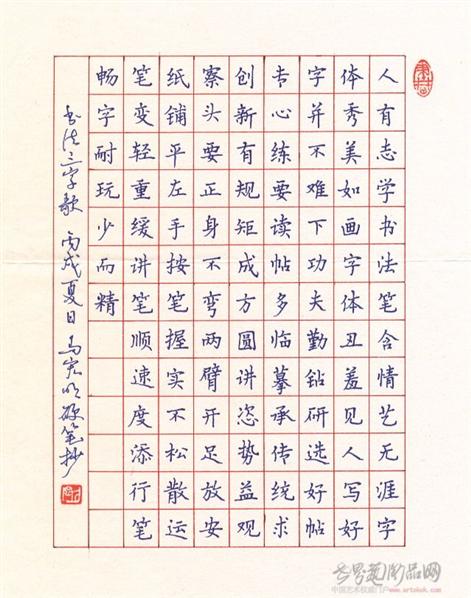 人有志学书法笔含情艺无涯字
体秀美如画字体丑羞见人写好
字并不难下功夫勤钻研选好帖
专心练要读帖多临摹承传统求
创新有规矩成方圆讲恣势益观
察头要正身不弯两臂开足放安
纸铺平左手按笔握实不松散运
笔变轻重缓讲笔顺速度添行笔
畅字耐玩少而精
书法三字歌 丙戌夏日 硬笔抄
世界艺术品网
中国艺术权威门户